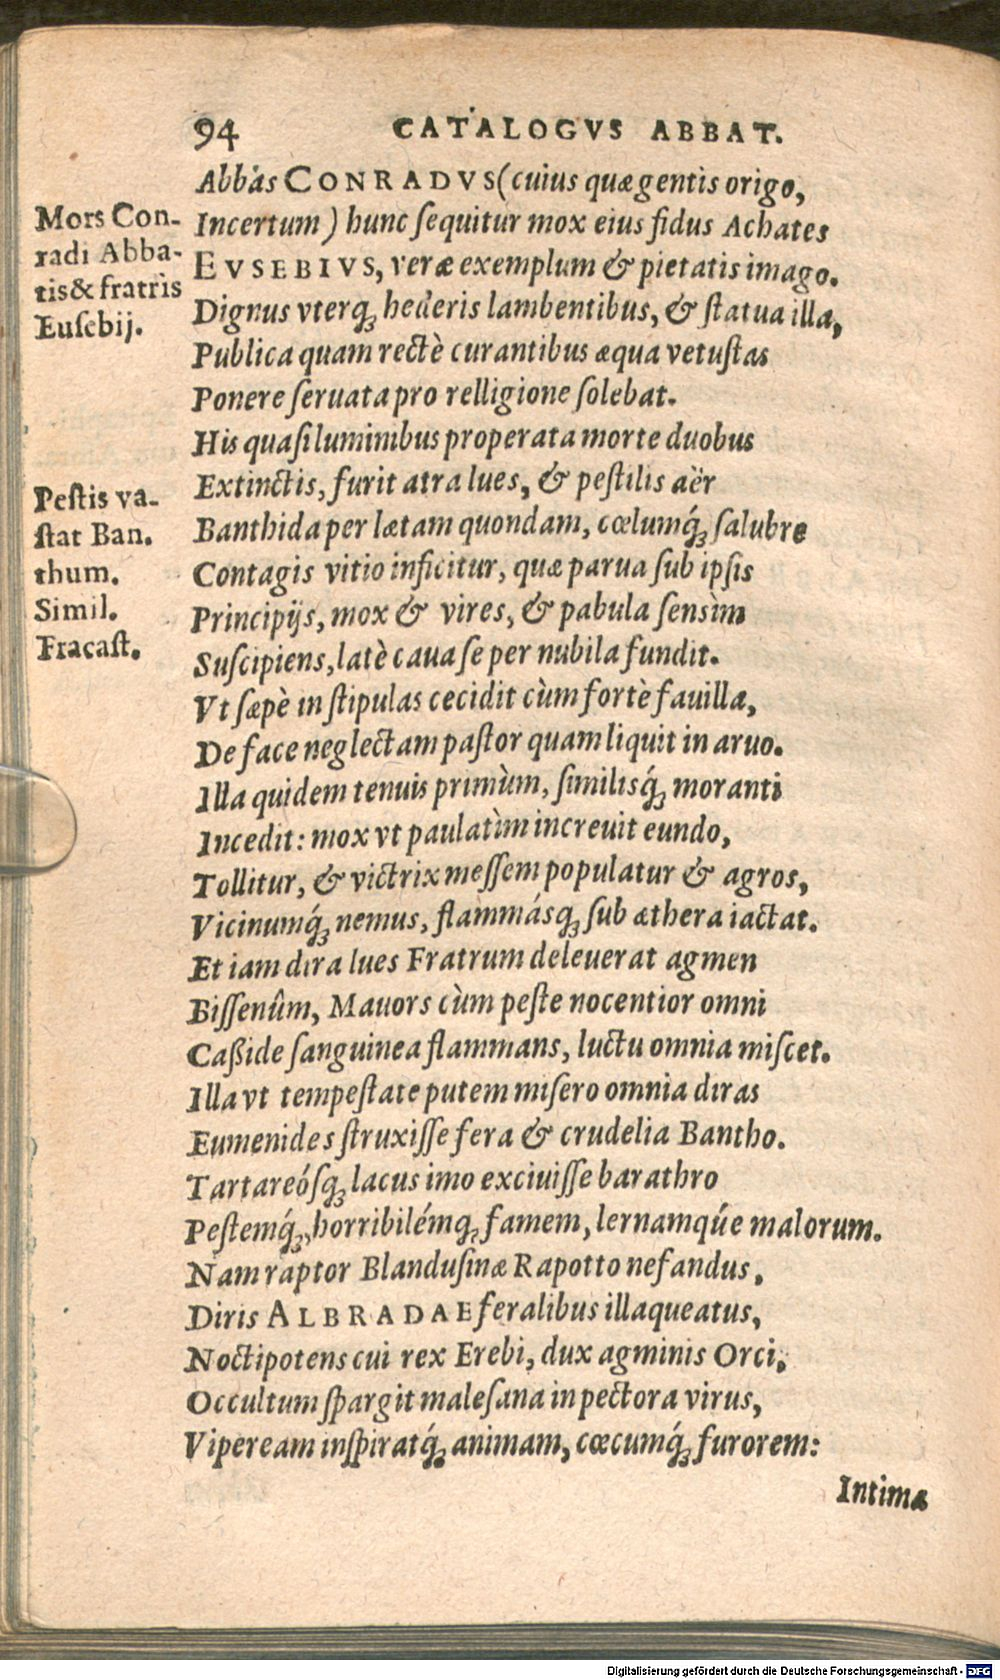 94 CATALOGVS ABBAT.
Abbas CONRADVS (cuius quæ gentis origo,
Incertum) hunc ſequitur mox eius fidus Achates
EVSEBIVS, veræ exemplum & pietatis imago.
Dignus vterq́ꝫ hederis lambentibus, & ſtatua illa,
Publica quam rectè curantibus æqua vetuſtas
Ponere ſeruata pro relligione ſolebat.
His quaſi luminibus properata morte duobus
Extinctis, furit atra lues, & peſtilis aër
Banthida per lætam quondam, cœlumq́ꝫ ſalubre
Contagis vitio inficitur, quæ parua ſub ipſis
Principijs, mox & vires, & pabula ſensìm
Suſcipiens, latè caua ſe per nubila fundit.
Vt ſæpè in ſtipulas cecidit cùm fortè fauilla,
De face neglectam paſtor quam liquit in aruo.
Illa quidem tenuis primùm, ſimilisq́ꝫ moranti
Incedit: mox vt paulatìm increuit eundo,
Tollitur, & victrix meſſem populatur & agros,
Vicinumq́ꝫ nemus, flammásqꝫ ſub æthera iactat.
Et iam dira lues Fratrum deleuerat agmen
Biſſenûm, Mauors cùm peſte nocentior omni
Caßide ſanguinea flammans, luctu omnia miſcet.
Illa vt tempeſtate putem miſero omnia diras
Eumenides ſtruxiſſe fera & crudelia Bantho.
Tartareóſqꝫ lacus imo exciuiſſe barathro
Peſtemq́ꝫ, horribilémqꝫ famem, lernamqúe malorum.
Nam raptor Blanduſinæ Rapotto nefandus,
Diris ALBRADAE feralibus illaqueatus,
Noctipotens cui rex Erebi, dux agminis Orci,
Occultum ſpargit maleſana in pectora virus,
Vipeream inſpiratq́ꝫ animam, cœcumq́ꝫ furorem:
Intimæ
Mors Con-
radi Abba-
tis & fratris
Euſebij.
Peſtis va-
ſtat Ban.
thum.
Simil.
Fracaſt.
Digitalisierung gefördert durch die Deutsche Forschungsgemeinschaft - DFG